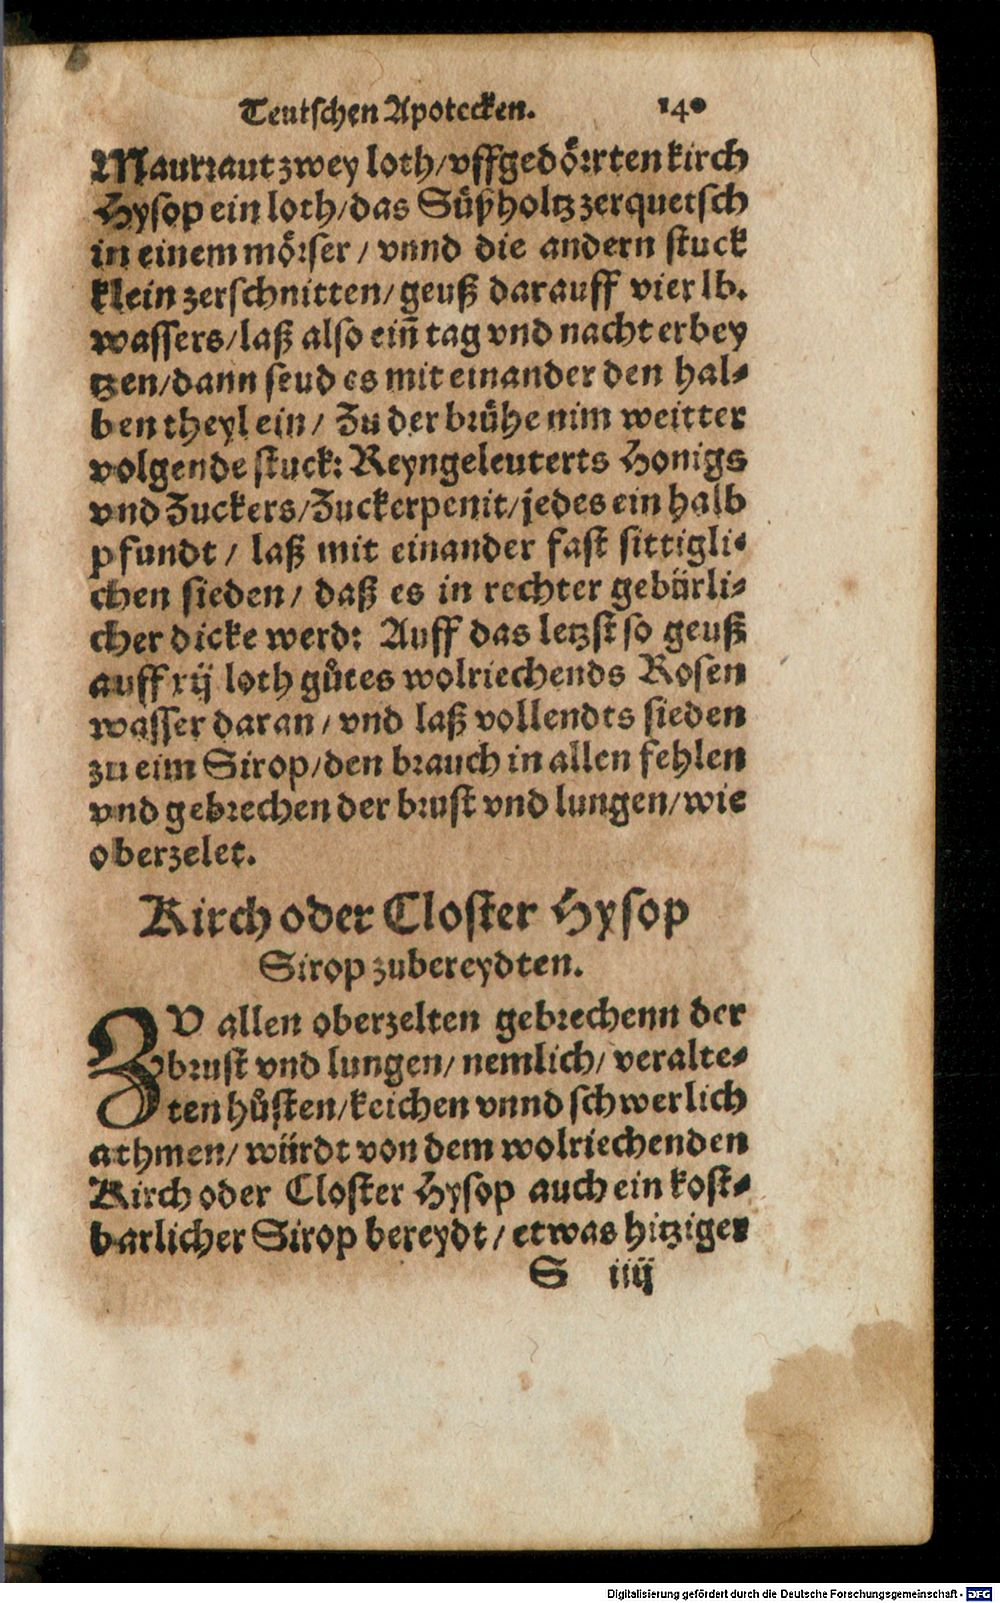 Teutschen Apotecken. 140
Maurraut zwey loth/vffgedörrten kirch
Hysop ein loth/das Süßholtz zerquetsch
in einem mörser / vnnd die andern stuck
klein zerschnitten/geuß darauff vier lb.
wassers/laß also eiñ tag vnd nacht erbey
tzen/dann seud es mit einander den hal-
ben theyl ein/ Zu der brühe nim weitter
volgende stuck: Reyngeleuterts Honigs
vnd Zuckers/Zuckerpenit/jedes ein halb
pfundt / laß mit einander fast sittigli-
chen sieden/ daß es in rechter gebürli-
cher dicke werd: Auff das letzst so geuß
auff xij loth gůtes wolriechends Rosen
wasser daran/vnd laß vollendts sieden
zu eim Sirop/den brauch in allen fehlen
vnd gebrechen der brust vnd lungen/wie
oberzelet.
Kirch oder Closter Hysop
Sirop zubereydten.
ZV allen oberzelten gebrechenn der
brust vnd lungen/ nemlich/ veralte-
ten hůsten/keichen vnnd schwerlich
athmen/ würdt von dem wolriechenden
Kirch oder Closter Hysop auch ein kost-
barlicher Sirop bereydt/ etwas hitziger
S iiij
Digitalisierung gefördert durch die Deutsche Forschungsgemeinschaft - DFG